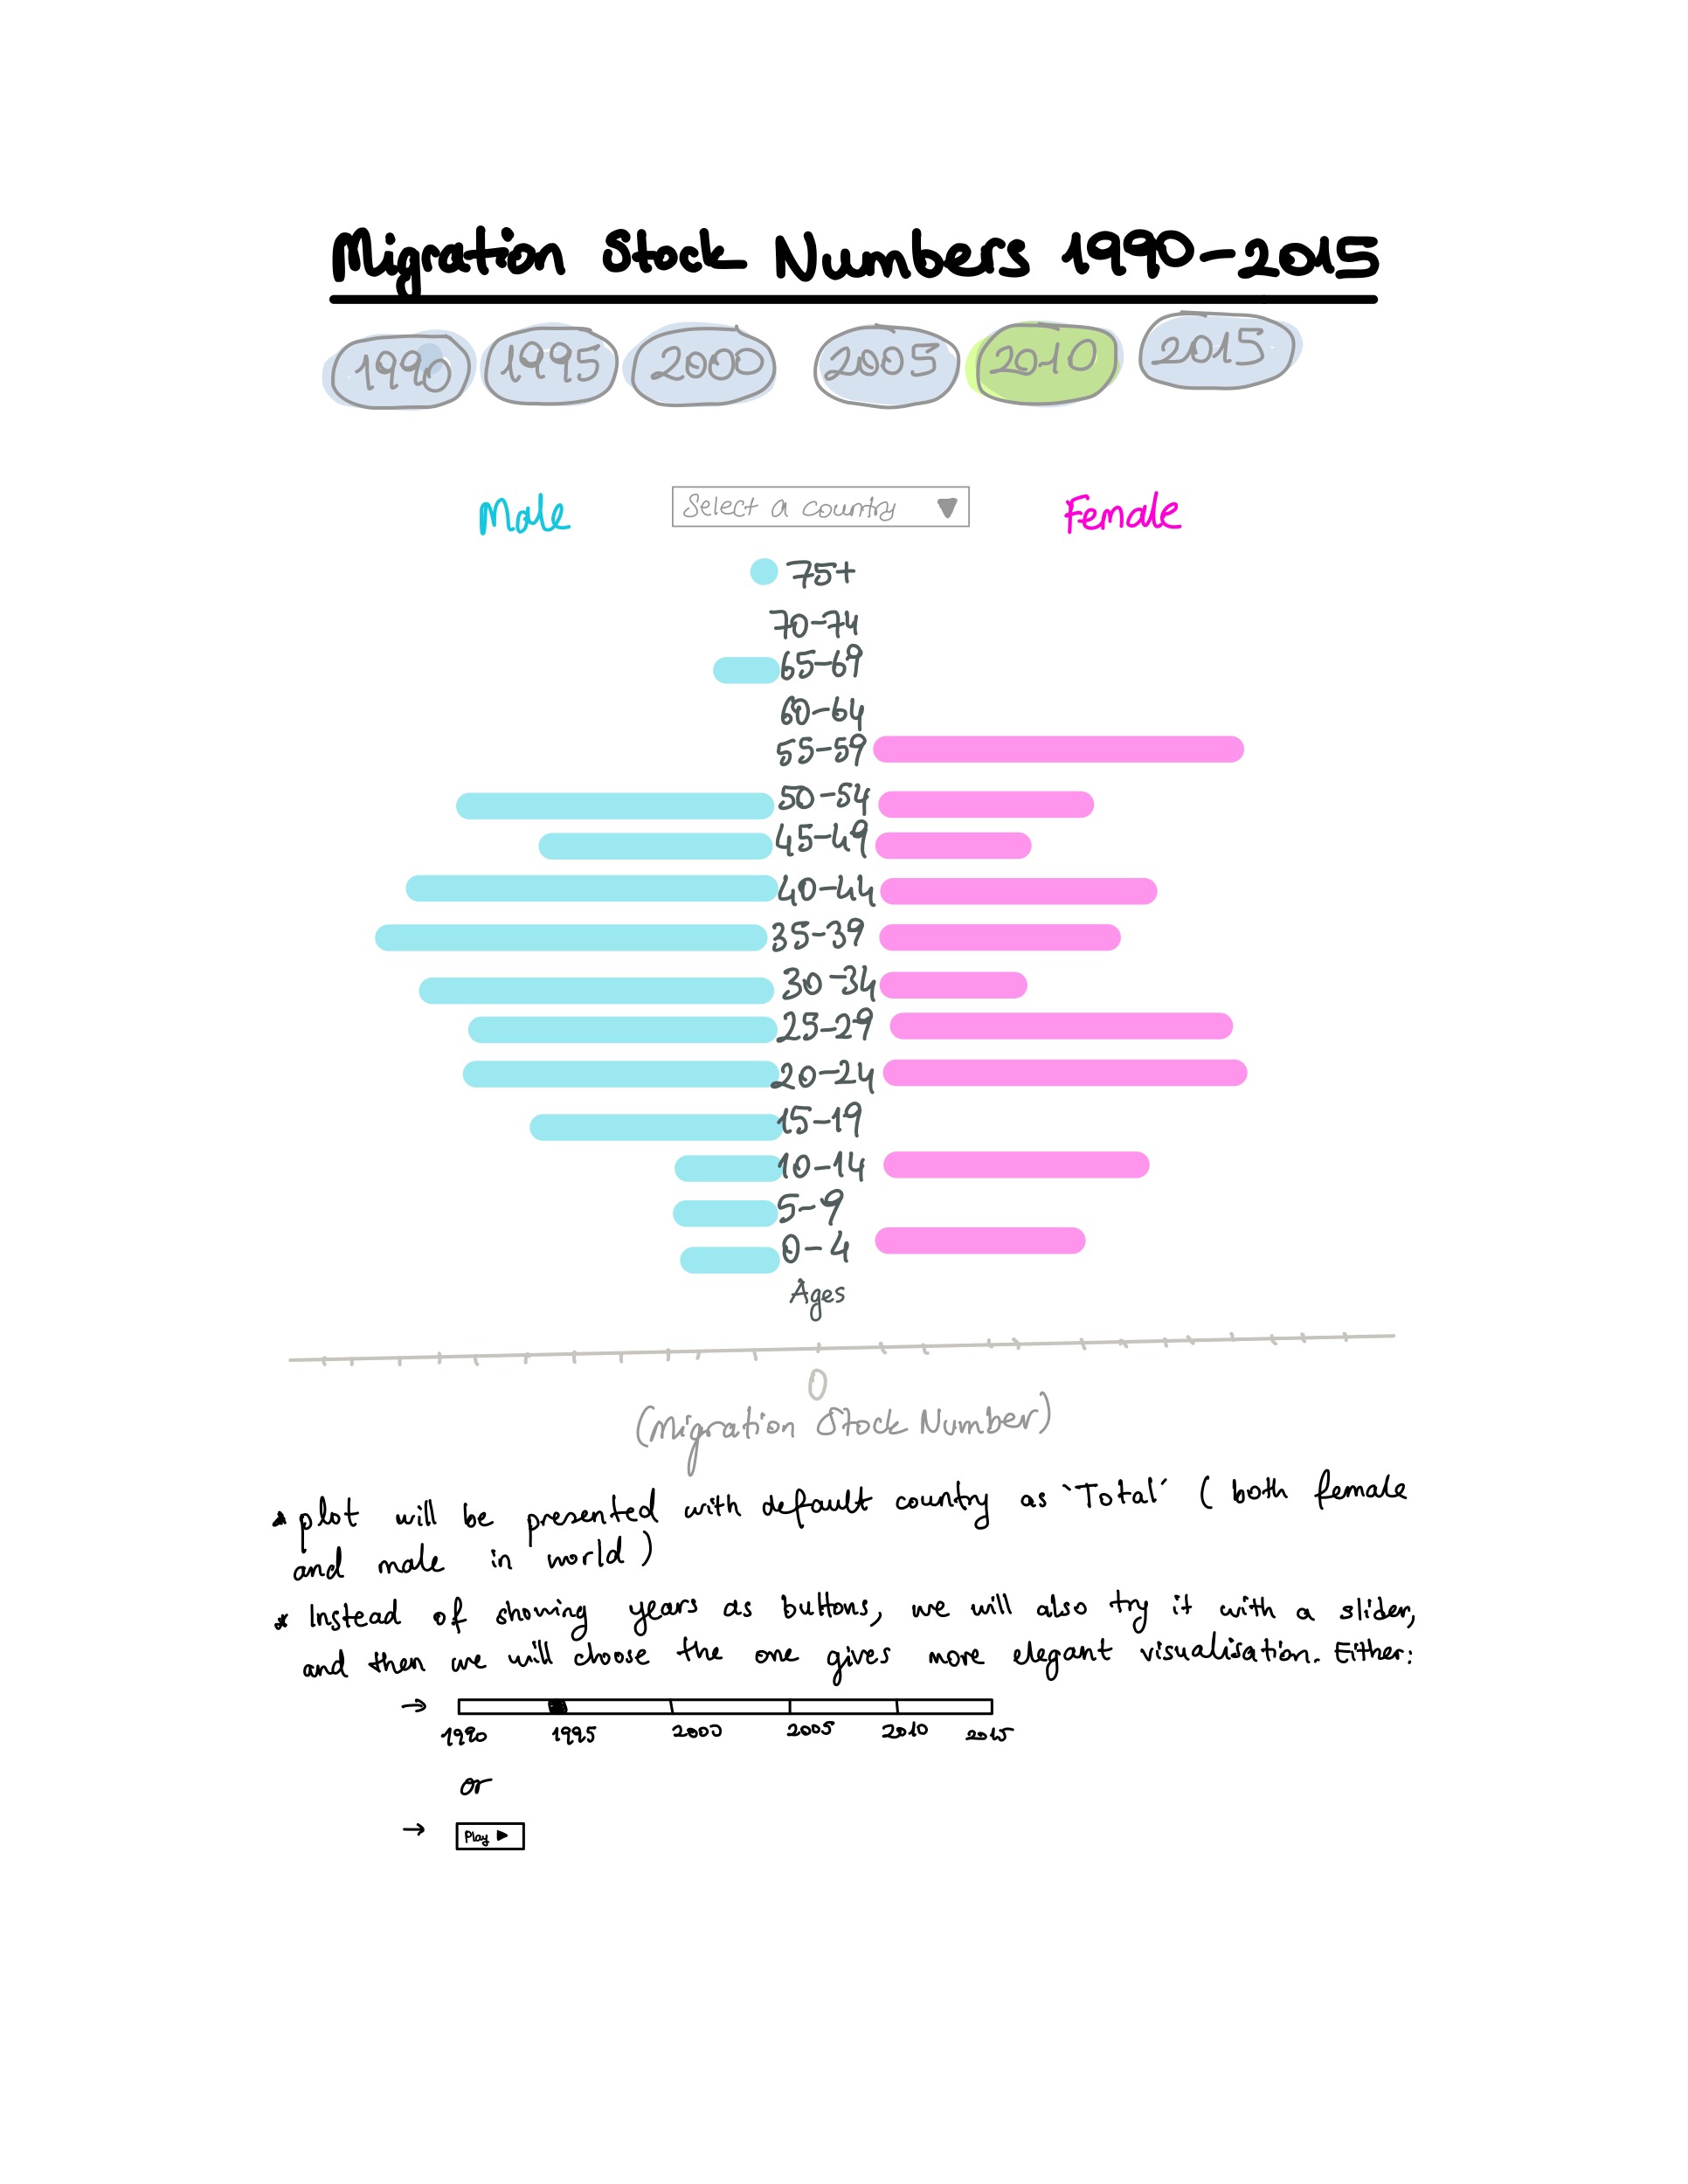 Migration Stock Numbers 1990-2015
1990 1995 2000 2005 2010 2015
Male Select a country ▼ Female
75+
70-74
65-69
60-64
55-59
50-54
45-49
40-44
35-39
30-34
25-29
20-24
15-19
10-14
5-9
0-4
Ages
0
(Migration Stock Number)
* plot will be presented with default country as `Total´ ( both female
and male in world )
* Instead of showing years as buttons, we will also try it with a slider,
and then we will choose the one gives more elegant visualisation. Either:
→
1990 1995 2000 2005 2010 2015
or
→ Play ▶